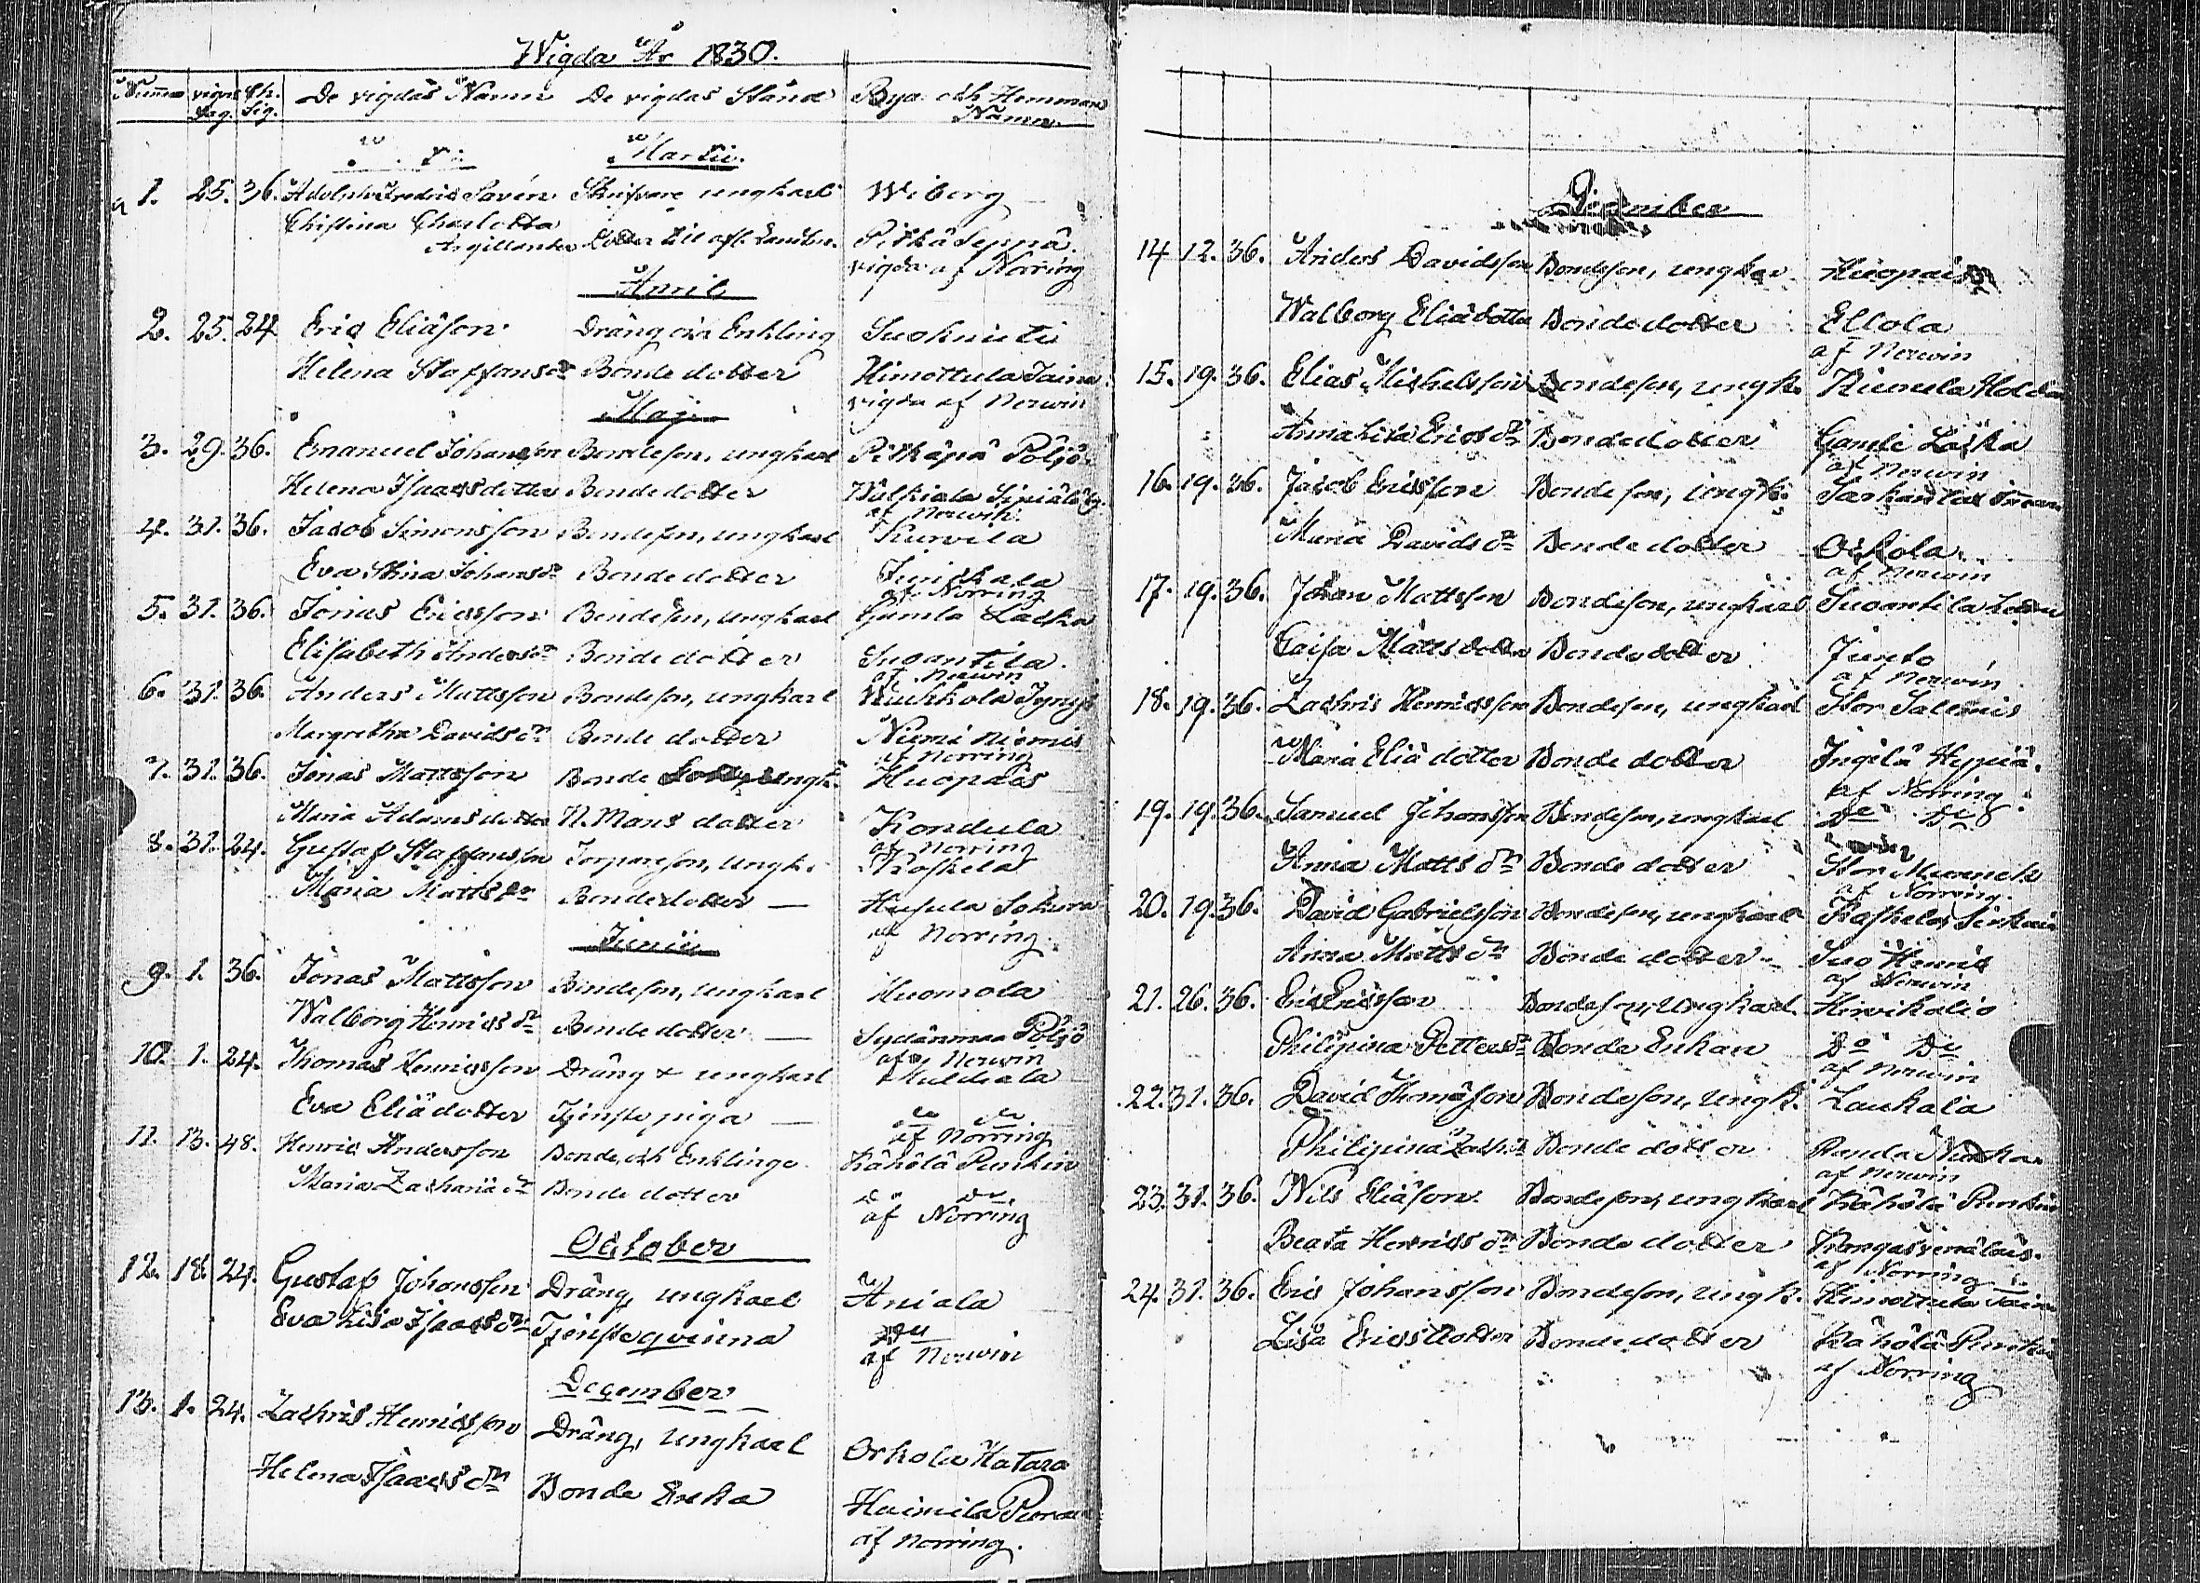 Wigda År 1830.
De vigdas Namn De vigdas Stånd Bya och Hemmans
dag. Sig. Namn.
Martii.
1. 25. 36. Adolph Fredric Savén ungkarl Wiborg
Christina Charlotta
Argillander Dotter till Pitkä Seppä
vigda af Norring
April
2. 25. 24 Eric Eliäson Dräng och Enkling
Helena Staffansdr Bonde dotter Himottula
vigda af Nerwin
Maji
3. 29. 36. Emanuel Johansson Bondeson, ungkarl Pitkäpä Pöljö
Helena Isaacsdotter Bondedotter
af Nerwin.
4. 31. 36. Jacob Simonsson Bondeson, ungkarl Kurvila
Eva Stina Johansdr Bondedotter
af Norring
5. 31. 36. Jonas Ericsson Bondeson, ungkarl Gamla Laska
Elisabeth Andersdr Bondedotter Suoantila
af Nerwin
6. 31. 36. Anders Mattsson Bondeson, ungkarl
Margretha Davidsdr Bonde dotter Niemi
af Norring
7. 31. 36. Jonas Mattsson Bonde Huopais
Maria Adamsdotter N. Mans dotter Kondula
af Norring
8. 31. 24. Gustaf Staffansson Torpareson, ungk. Koskela
Maria Mattsdr Bondedotter — Husula
af Norring
Junii
9. 1. 36. Jonas Mattsson Bondeson, ungkarl Huomola
Walborg Henricsdr Bondedotter — Sydänmaa Pöljö
af Nerwin
10. 1. 24. Thomas Henricsson Dräng & ungkarl
Eva Eliädotter Tjenste piga — do do
af Norring
11. 13. 48. Henric Andersson Bonde, och Enklinge Kähölä Punkin
Maria Zachariädr Bonde dotter do do
af Norring
October
12. 18. 24. Gustaf Johansson Dräng, ungkarl Aniala
Eva Lisa Isaacsdr Tjensteqvinna do
af Nerwin
December
13. 1. 24. Zachris Henricsson Dräng, ungkarl Orkola Katara
Helena Isaacsdr Bonde Enka Haimila
af Norring.
December
14 12. 36. Anders Davidsson Bondeson, ungkar Huopais
Walborg Eliädotter Bondedotter Ellola
af Nerwin
15. 19. 36. Elias Michelsson Bondeson, ungk.
Anna Lisa Ericsdr Bondedotter Gamle Laska
af Nerwin
16. 19. 36. Jacob Ericsson Bondeson, ungk.
Maria Davidsdr Bondedotter Orkola
af Nerwin
17. 19. 36. Johan Mattsson Bondeson, ungkarl Suoantila
Caisa Mattsdotter Bondedotter Junto
af Nerwin
18. 19. 36. Zachris Henricsson Bondeson, ungkarl Stor
Maria Eliädotter Bonde dotter Ingilä Heppiä.
af Norring
19. 19. 36. Samuel Johansson Bondeson, ungkarl Do Do
Anna Mattsdr Bonde dotter Stor
af Norring.
20. 19. 36. David Gabrielsson Bondeson, ungkarl
Anna Mattsdr Bonde dotter Suo Henric
af Nerwin
21. 26. 36. Eric Ericsson Bondeson, Ungkarl. Hirvikalio
Philipina Pettersdr Bonde Enkan Do Do
af Nerwin
22. 31. 36. David Thomasson Bondeson, ungk. Laukala
Philipina Bonde dotter
af Nerwin
23. 31. 36. Nils Eliäson Bondeson, ungkarl Kähölä Punkin
Beata Henricsdr Bonde dotter
af Norring
24. 31. 36. Eric Johansson Bondeson, ungk. Himottula
Lisa Ericsdotter Bondedotter Kähölä Punkin
af Norring